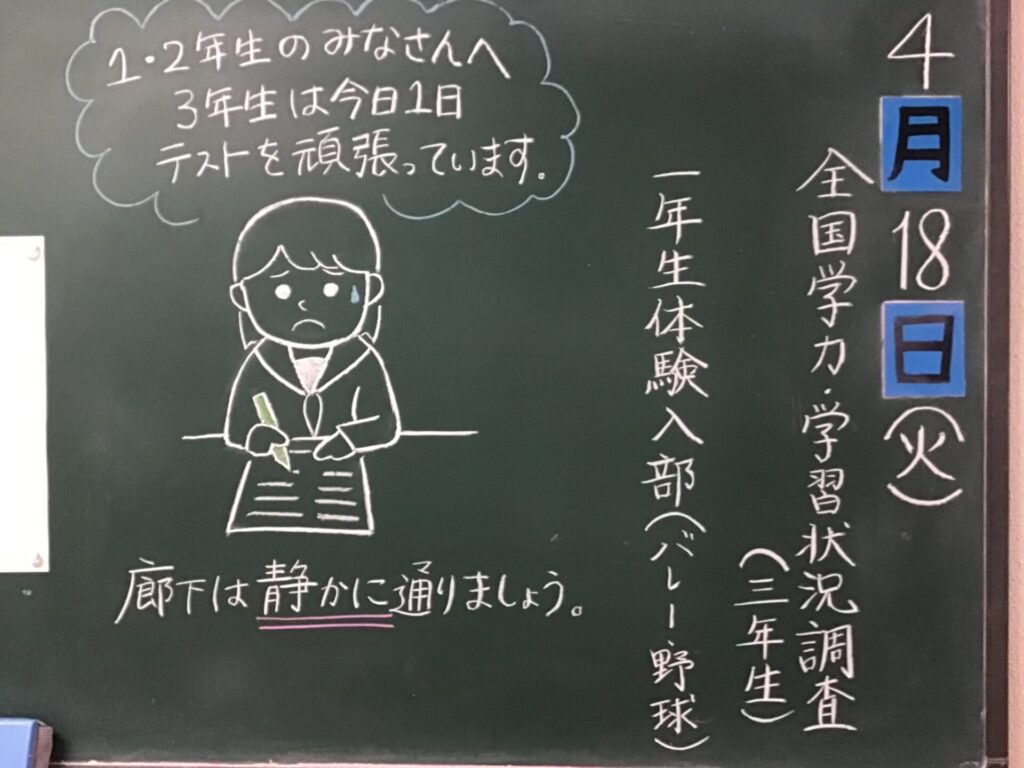 4月18日(火)
全国学力・学習状況調査
(三年生)
一年生体験入部(バレー野球)
1・2年生のみなさんへ
3年生は今日1日
テストを頑張っています。
廊下は静かに通りましょう。